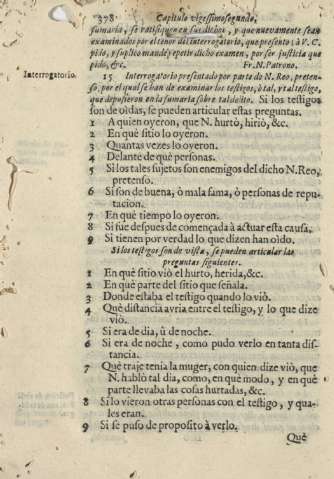 378 Capitulo vigessimosegundo,
sumaria, se ratifiquen en sus dichos, y que nuevamente sean
examinados por el tenor del Interrogatorio, que presento; à V. C.
pido, y suplico mande repetir dicho examen, por ser justicia que
pido, &c. Fr. N. Patrono.
Interrogatorio.
15 Interrogatorio presentado por parte do N. Reo, preten-
so, por el qual se han de examinar los testigos, à tal, y tal testigo,
que depusieron en la sumaria sobre tal delito. Si los testigos
son de oìdas, se pueden articular estas preguntas.
1 A quien oyeron, que N. hurtò, hiriò, &c.
2 En què sitio lo oyeron.
3 Quantas vezes lo oyeron.
4 Delante de què personas.
5 Si los tales sujetos son enemigos del dicho N. Reo,
pretenso.
6 Si son de buena, ò mala fama, ò personas de repu-
tacion.
7 En què tiempo lo oyeron.
8 Si fue despues de començada à actuar esta causa.
9 Si tienen por verdad lo que dizen han oìdo.
Si los testigos son de vista, se pueden articular las
preguntas siguientes.
1 En què sitio viò el hurto, herida, &c.
2 En què parte del sitio que señala.
3 Donde estaba el testigo quando lo viò.
4 Què distancia avria entre el testigo, y lo que dize
viò.
5 Si era de dia, ù de noche.
6 Si era de noche, como pudo verlo en tanta dis-
tancia.
7 Què traje tenia la muger, con quien dize viò, que
N. hablò tal dia, como, en què modo, y en què
parte llevaba las cosas hurtadas, &c.
8 Si lo vieron otras personas con el testigo, y qua-
les eran.
9 Si se puso de proposito à verlo.
Què